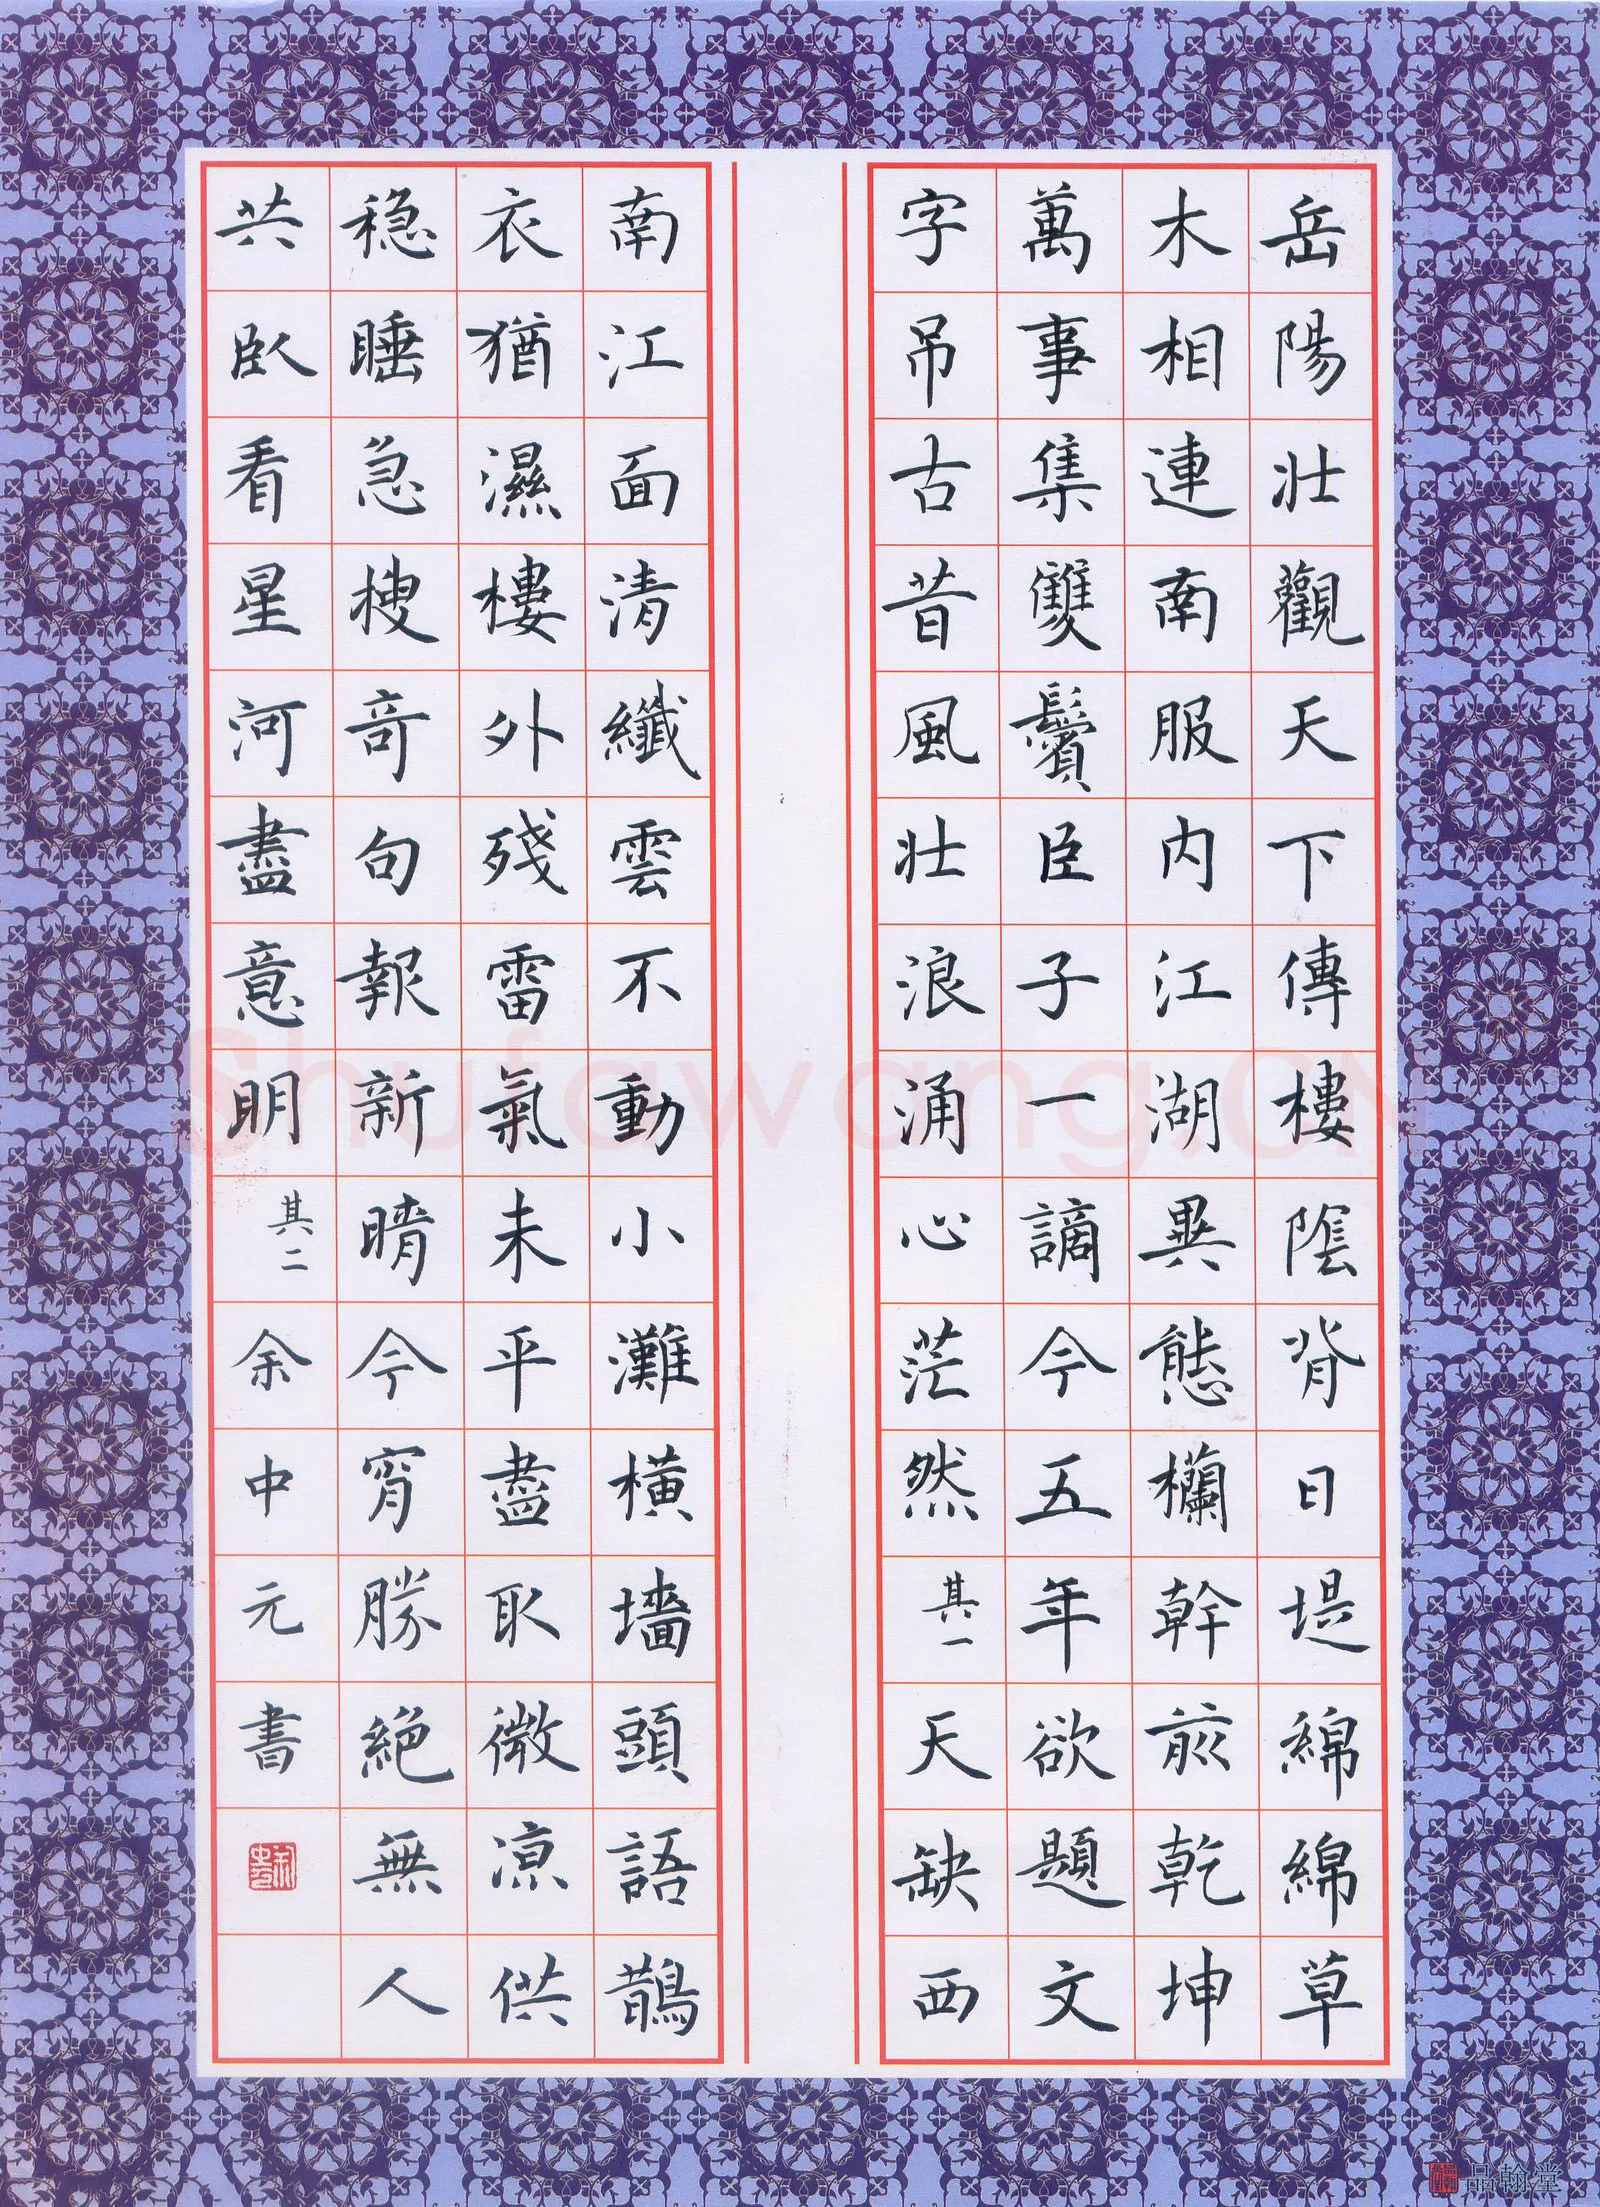 岳陽壯觀天下傳樓陰背日堤綿綿草
木相連南服内江湖異態欄幹前乾坤
萬事集雙鬢臣子一謫今五年欲題文
字吊古昔風壯浪涌心茫然其一天缺西
南江面清纖雲不動小灘橫墻頭語鵲
衣猶濕樓外殘雷氣未平盡取微涼供
穩睡急搜奇句報新晴今宵勝絶無人
共臥看星河盡意明其二余中元書
Shufawang.CN
品翰堂